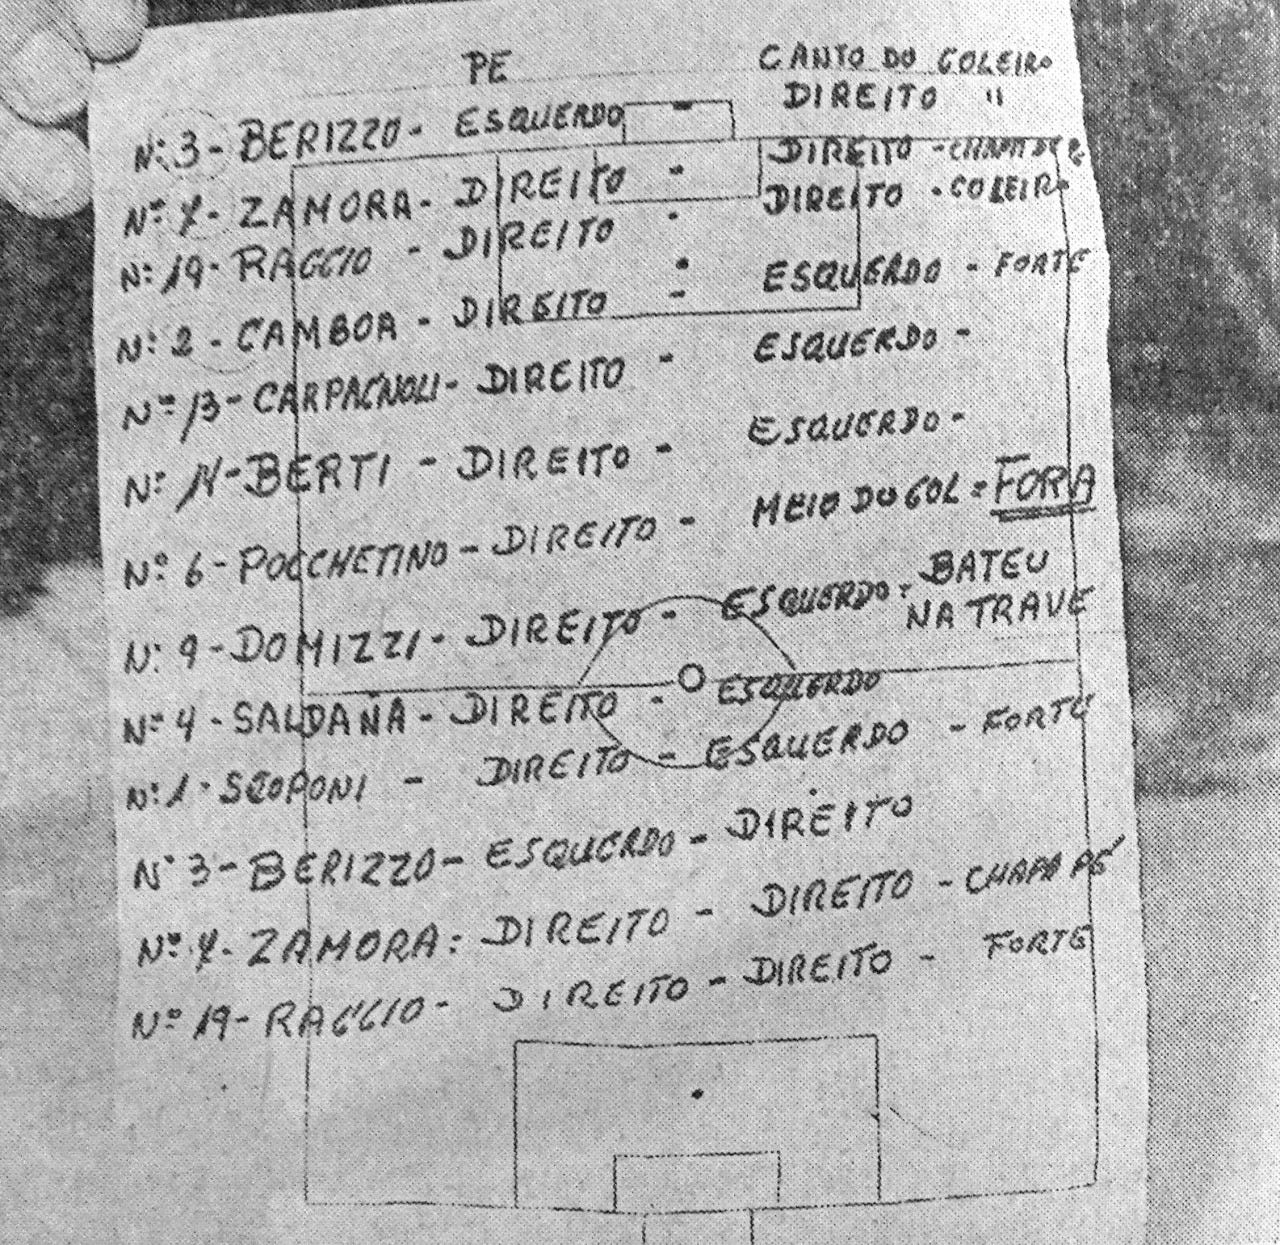 PE CANTO DO GOLEIRO
Nº 3 - BERIZZO - ESQUERDO - DIREITO "
Nº 7 - ZAMORA - DIREITO - DIREITO - CHAPA DE PE
Nº 19 - RAGGIO - DIREITO - DIREITO - GOLEIRO
Nº 2 - GAMBOA - DIREITO - ESQUERDO - FORTE
Nº 13 - CARPAGNOLI - DIREITO - ESQUERDO -
Nº 14 - BERTI - DIREITO - ESQUERDO -
Nº 6 - POCCHETINO - DIREITO - MEIO DU GOL = FORA
Nº 9 - DOMIZZI - DIREITO - ESQUERDO = BATEU NA TRAVE
Nº 4 - SALDAÑA - DIREITO - ESQUERDO
Nº 1 - SCOPONI - DIREITO - ESQUERDO - FORTE
Nº 3 - BERIZZO - ESQUERDO - DIREITO
Nº 7 - ZAMORA = DIREITO - DIREITO - CHAPA PÉ
Nº 19 - RAGGIO - DIREITO - DIREITO - FORTE